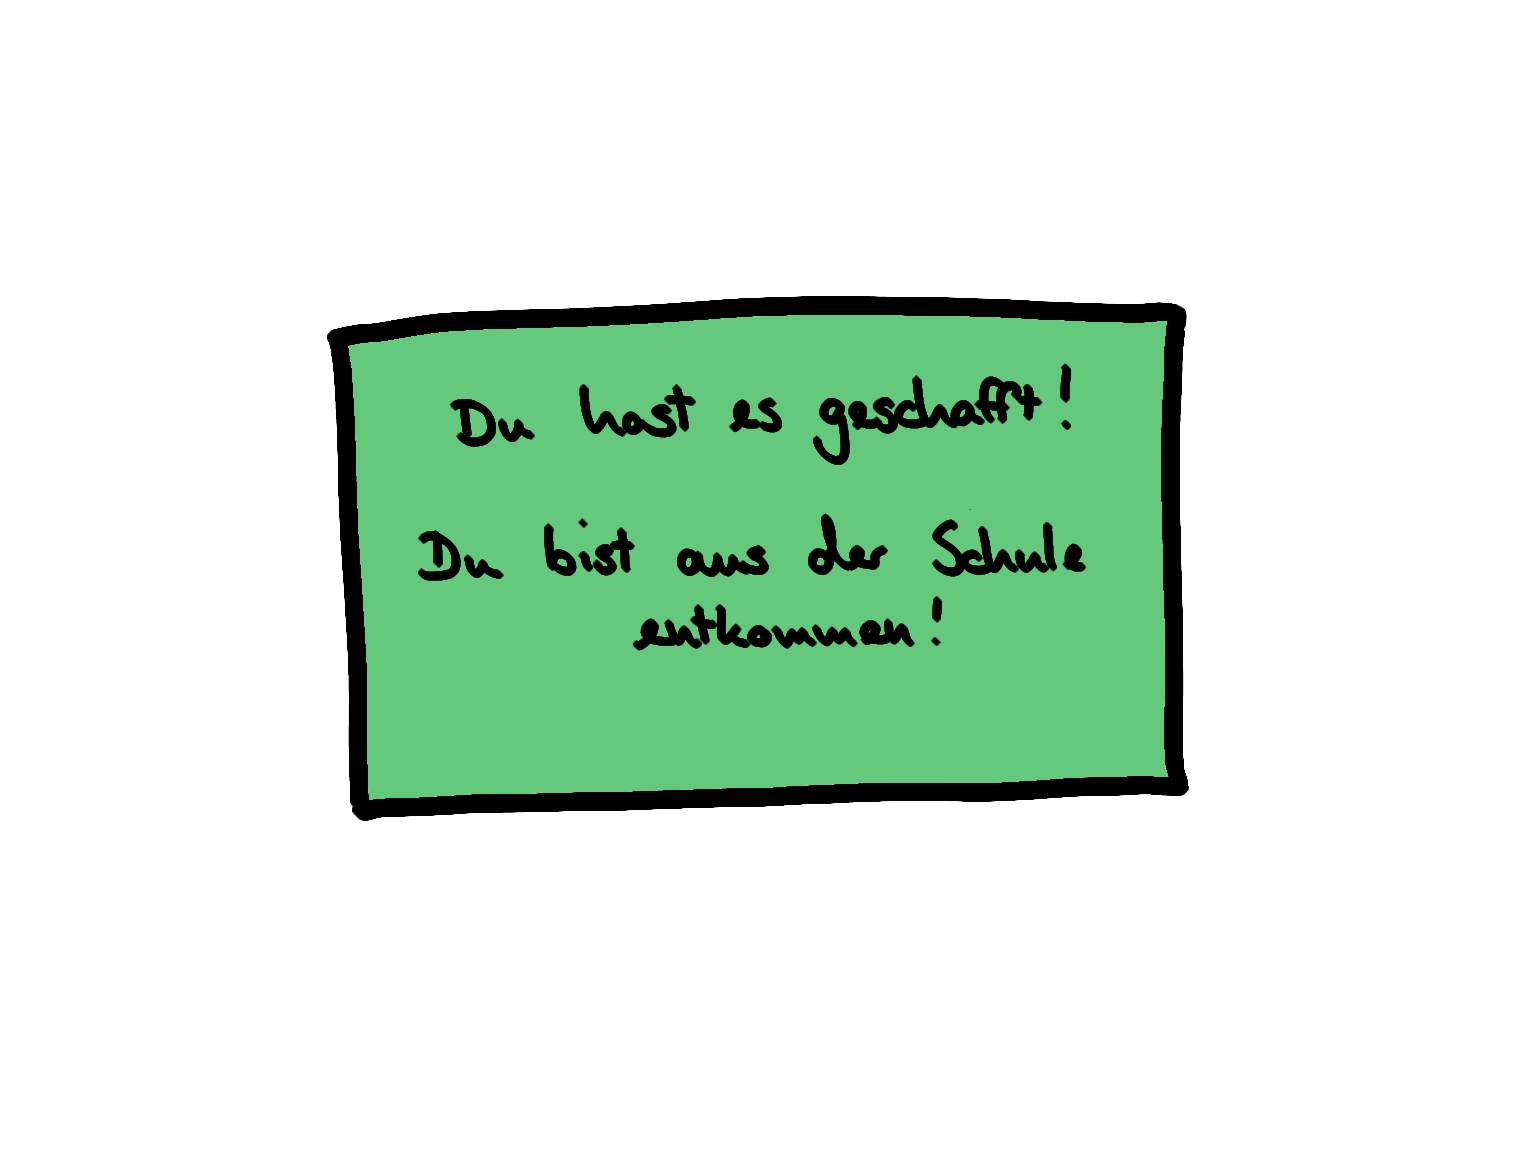 Du hast es geschafft!
Du bist aus der Schule
entkommen!